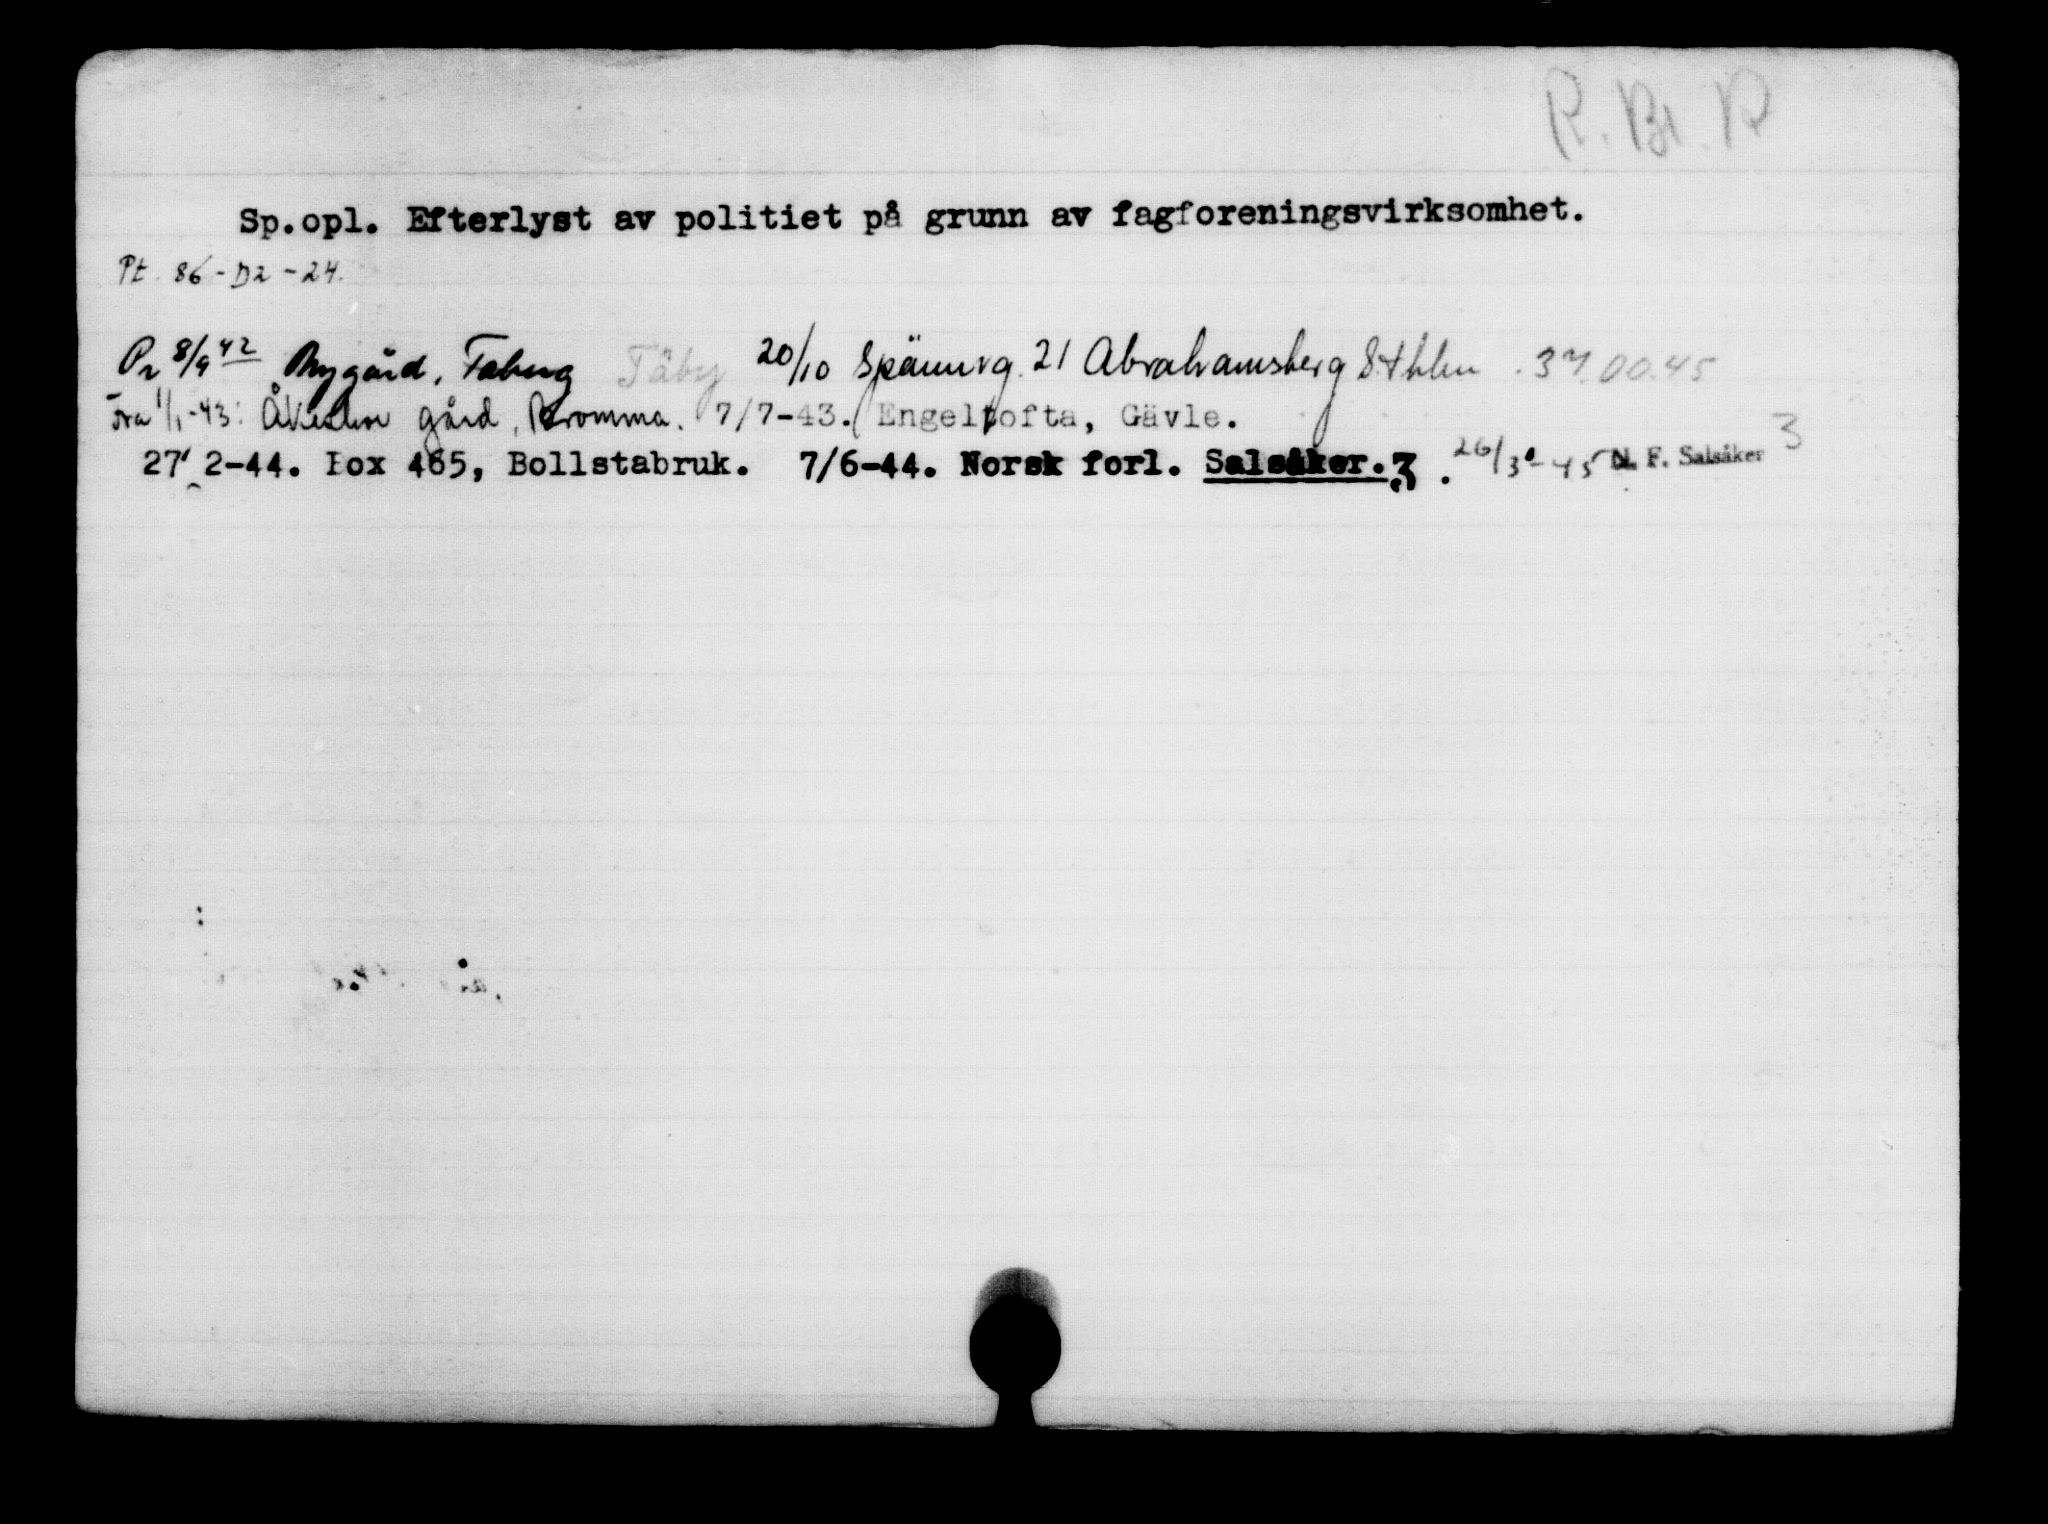 R. Br. R
Sp.opl. Efterlyst av politiet på grunn av fagforeningsvirksomhet.
Pt. 86-D2-24.
Pr 8/9 42 Nygård, Taberg Täby 20/10 Spännvg. 21 Abrahamsberg Sthlm . 37.00.45
Fra 1/1-43: Åkeshov gård, Bromma. 7/7-43. Engeltofta, Gävle.
27/2-44. Box 465, Bollstabruk. 7/6-44. Norsk forl. Salsåker.3 . 26/3-45 N. F. Salsåker 3